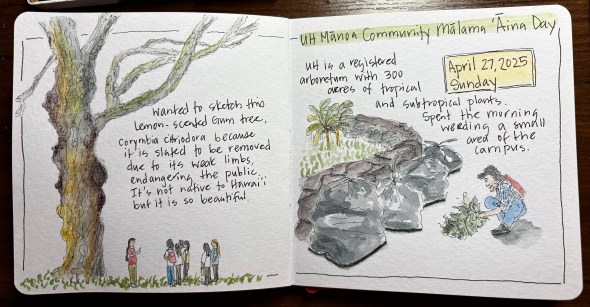 Wanted to sketch this
Lemon-scented Gum tree,
Corymbia citriodora because
it is slated to be removed
due to its weak limbs,
endangering the public.
It's not native to Hawai'i
but it is so beautiful.
UH Mānoa Community Mālama 'Āina Day
UH is a registered
arboretum with 300
acres of tropical
and subtropical plants.
April 27, 2025
Sunday
Spent the morning
weeding a small
area of the
campus.